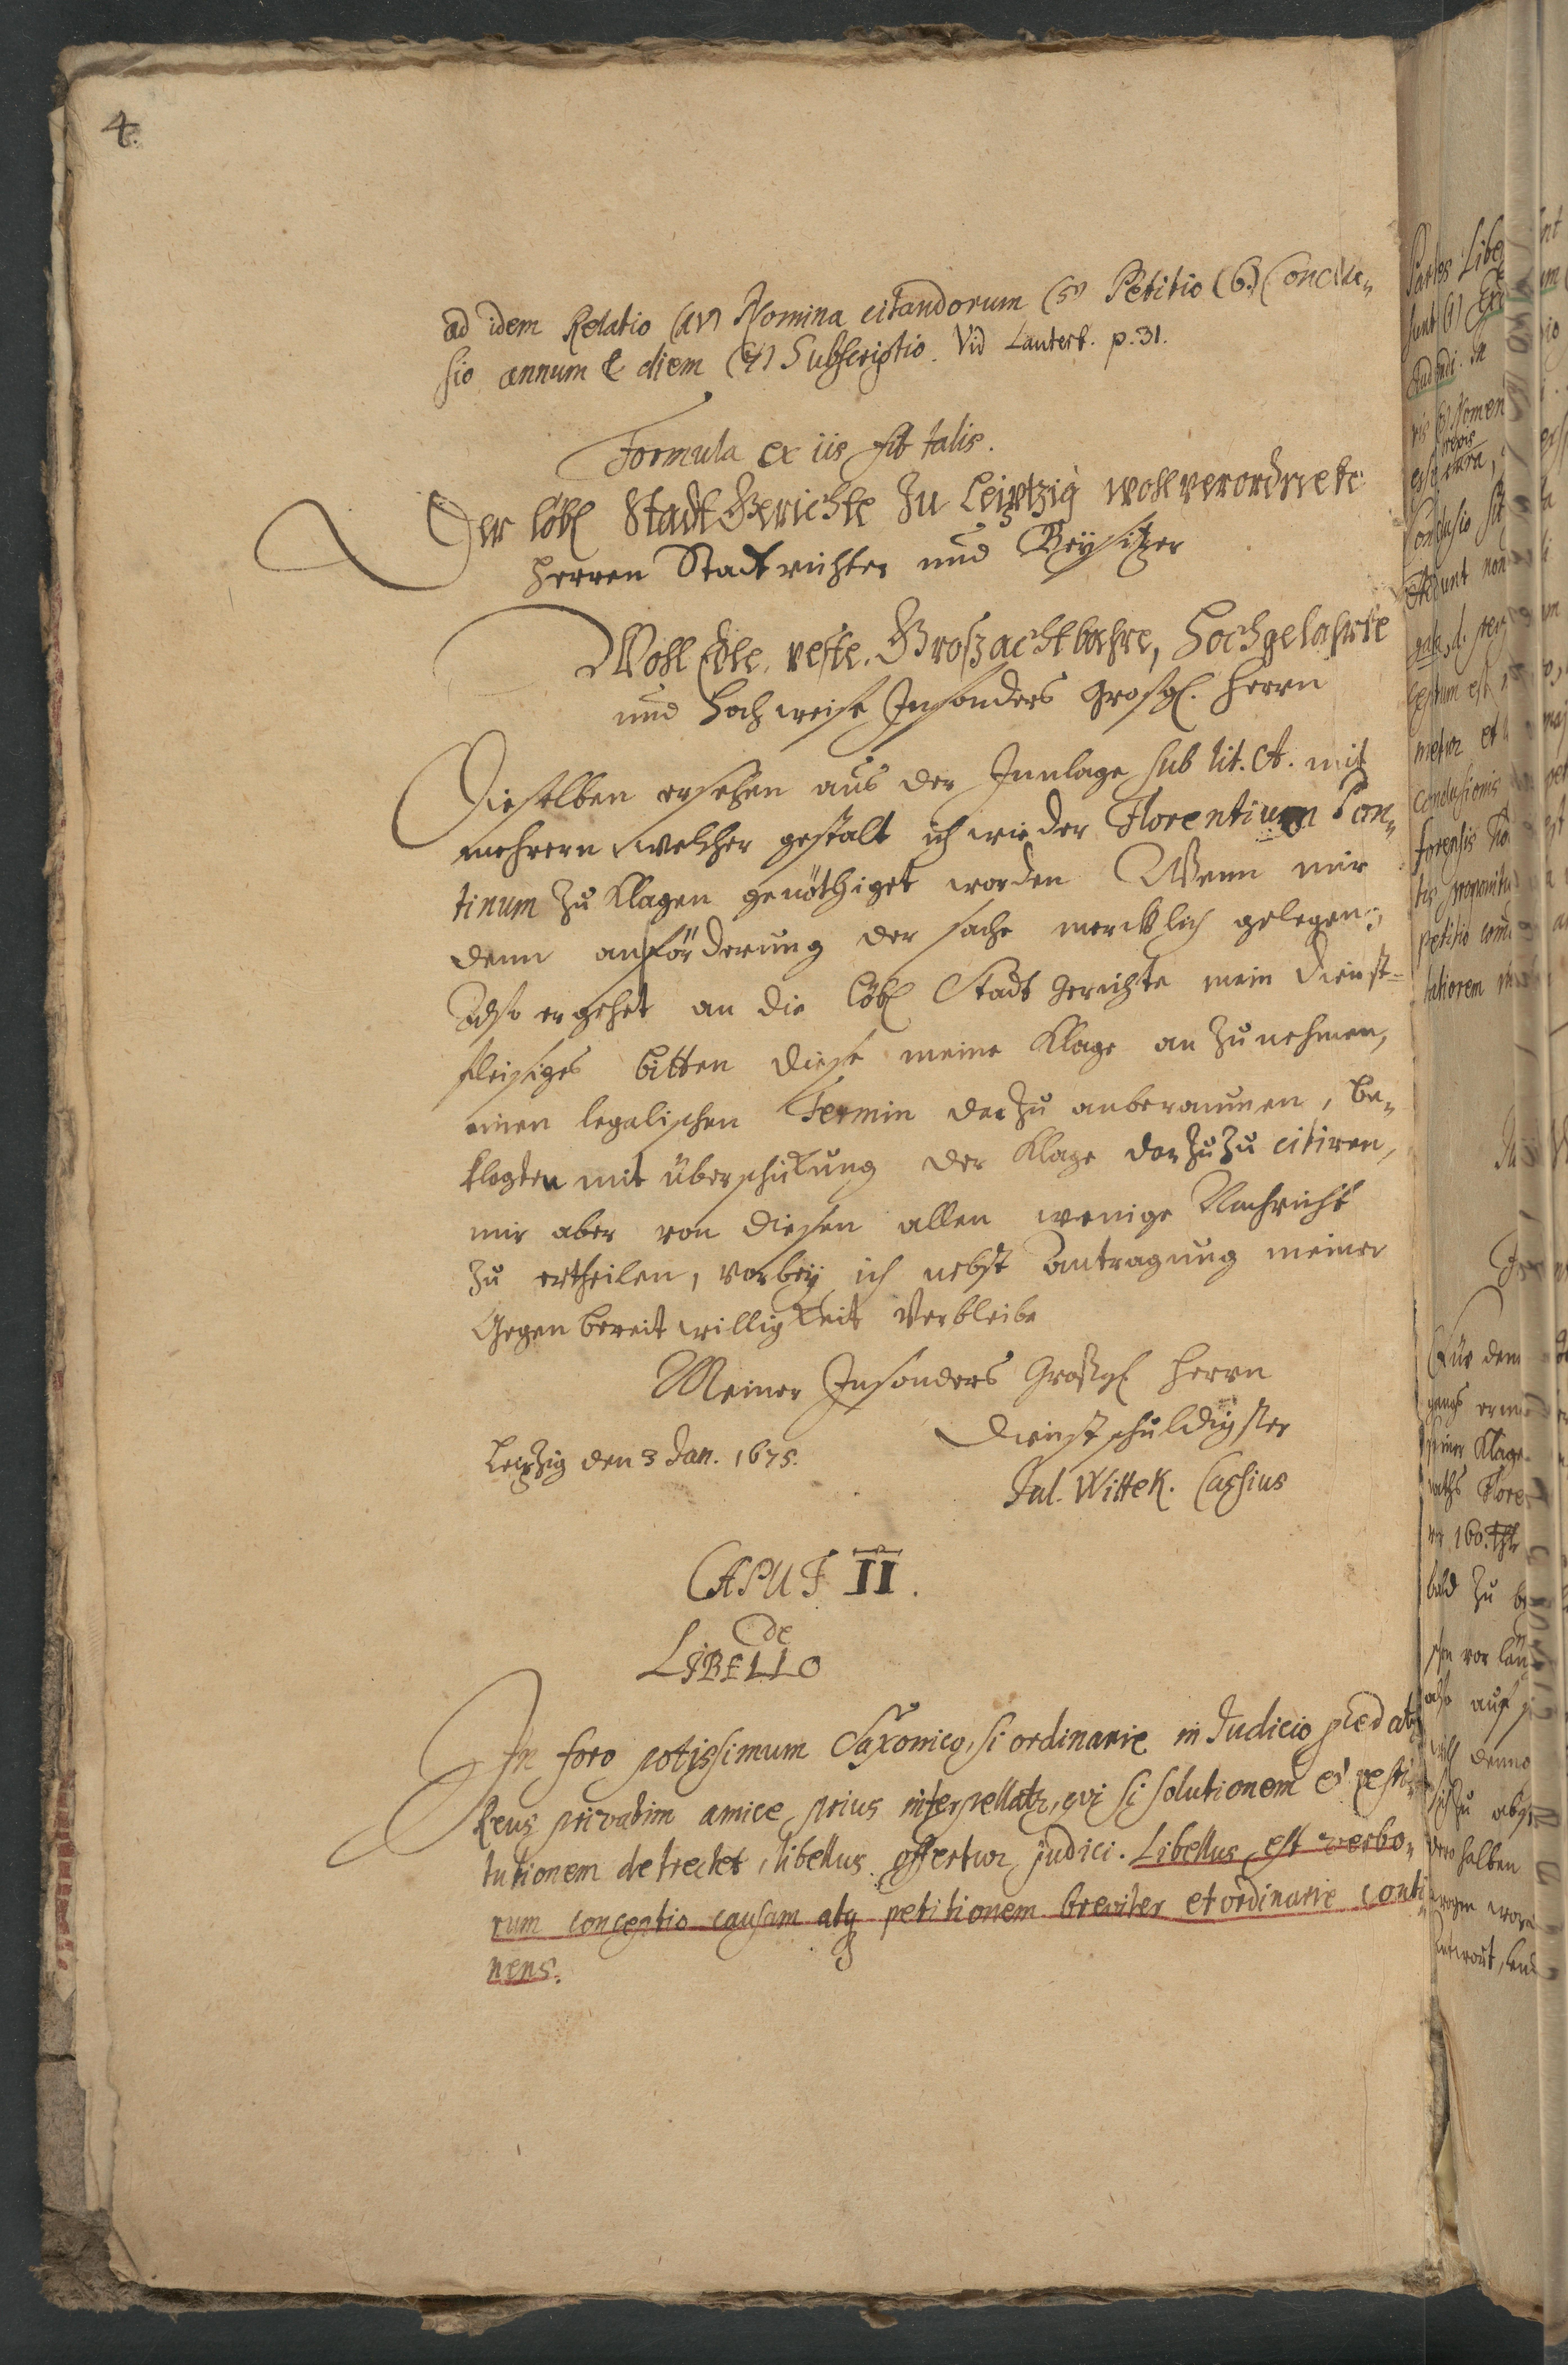 4.
ad idem Relatio (4) Nomina citandorum (5) Petitio (6) Conclu„
sio annum & diem (7) Subscriptio. Vid Lauterb. p. 31.
Formula ex iis fit talis.
Der löbl Stadt Gerichte zu Leiptzig wohlverordnete
Herren Stadtrichter und Beysitzer
WohlEdle, veste, Großachtbahre, Hochgelahrte
und Hochweise Insonders großgl. Herrn
Dieselben ersehen aus der Innlage sub lit. A. mit
mehrern welcher gestalt ich wieder Florentium Con„
tinum zu klagen genöthiget worden Wenn mir
denn an förderung der sache mercklich gelegen;
Also ergehet an die löbl Stadt Gerichte mein dienst-
fleisiges bitten diese meine Klage an zu nehmen,
einen legalischen Termin darzu anberaumen, be„
klagten mit überschickung der Klage darzu zu citiren,
mir aber von diesen allen wenige Nachricht
zu ertheilen, vorbey ich nebst antragung meiner
Gegen bereit willigkeit Verbleibe
Meiner Insonders Großgl Herrn
Dienstschuldigster
Leipzig den 3 Jan. 1675.
Jul. Wittek. Cassius
CAPUT II.
de
LIBELLO
In foro potissimum Saxonico, si ordinarie in Judicio
Reus privatim amice prius interpellatr, qvi si solutionem & resti
tutionem detrectet, libellus offertur judici. Libellus est verbo„
rum conceptio causam atq petitionem breviter et ordinarie conti
nens.